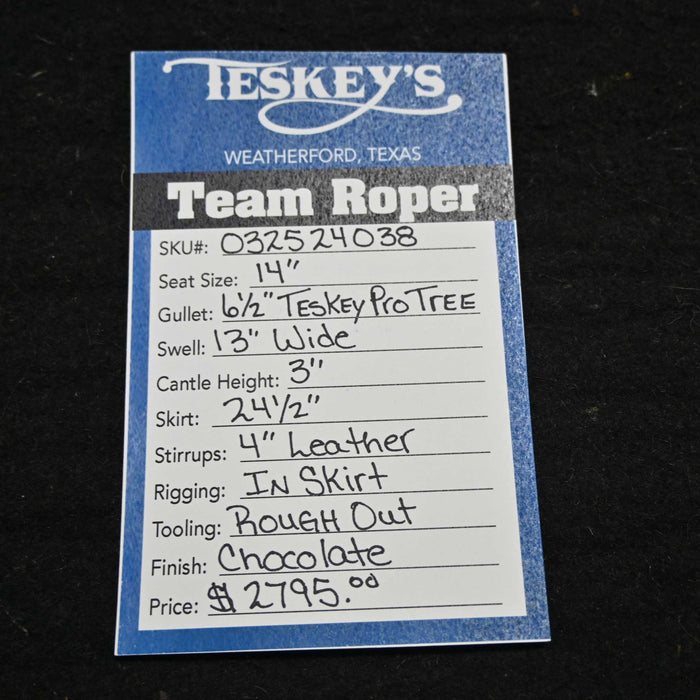 TESKEY'S
WEATHERFORD, TEXAS
Team Roper
SKU#: 032524038
Seat Size: 14"
Gullet: 6½" TESKEY PRO TREE
Swell: 13" Wide
Cantle Height: 3"
Skirt: 24½"
Stirrups: 4" Leather
Rigging: IN SKirt
Tooling: ROUGH Out
Finish: Chocolate
Price: $2795.00